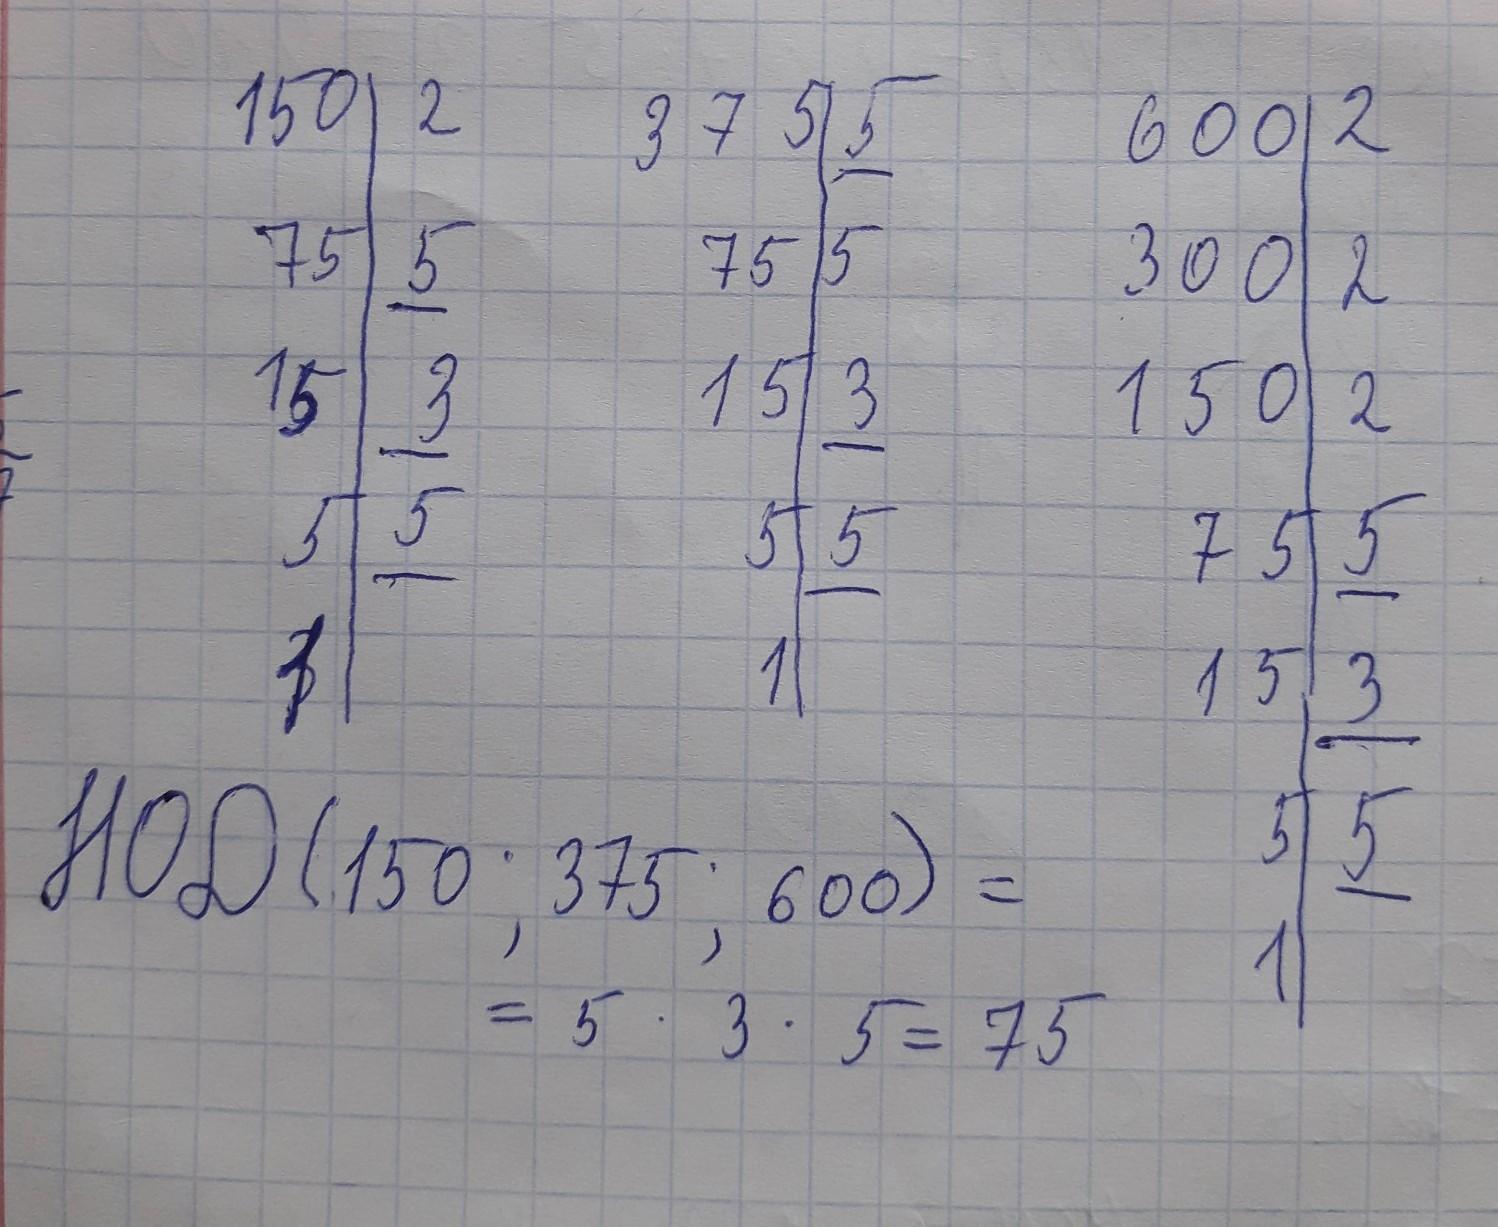 150 | 2
75 | 5
15 | 3
5 | 5
1
375 | 5
75 | 5
15 | 3
5 | 5
1
600 | 2
300 | 2
150 | 2
75 | 5
15 | 3
5 | 5
1
НОД (150; 375; 600) =
= 5 · 3 · 5 = 75